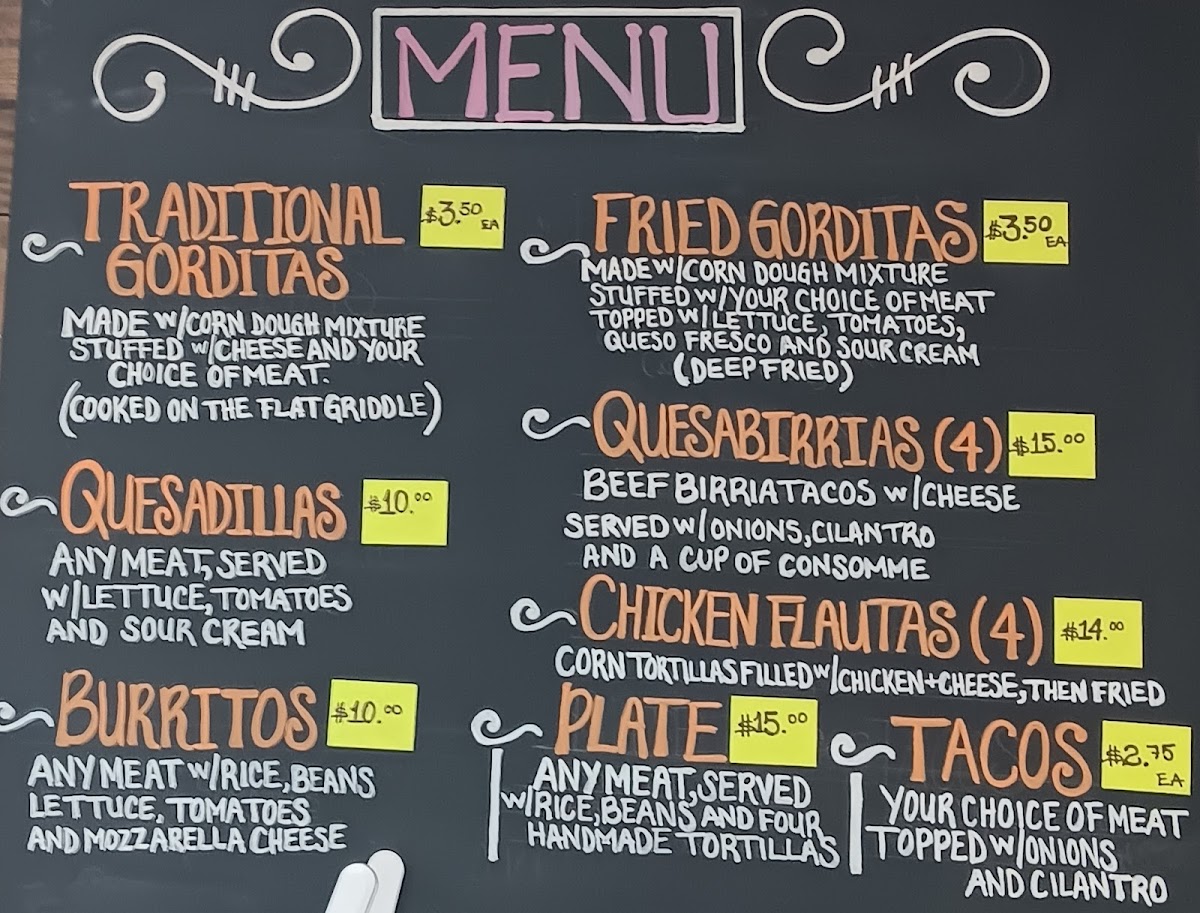 MENU
TRADITIONAL
GORDITAS
$3.50
EA
MADE W/CORN DOUGH MIXTURE
STUFFED W/CHEESE AND YOUR
CHOICE OF MEAT.
(COOKED ON THE FLAT GRIDDLE)
QUESADILLAS
$10.00
ANY MEAT, SERVED
W/LETTUCE, TOMATOES
AND SOUR CREAM
BURRITOS
$10.00
ANY MEAT W/RICE, BEANS
LETTUCE, TOMATOES
AND MOZZARELLA CHEESE
FRIED GORDITAS
$3.50
EA
MADE W/CORN DOUGH MIXTURE
STUFFED W/YOUR CHOICE OF MEAT
TOPPED W/LETTUCE, TOMATOES,
QUESO FRESCO AND SOUR CREAM
(DEEP FRIED)
QUESABIRRIAS (4)
$15.00
BEEF BIRRIA TACOS W/CHEESE
SERVED W/ONIONS, CILANTRO
AND A CUP OF CONSOMME
CHICKEN FLAUTAS (4)
$14.00
CORN TORTILLAS FILLED W/CHICKEN+CHEESE, THEN FRIED
PLATE
$15.00
ANY MEAT, SERVED
W/RICE, BEANS AND FOUR
HANDMADE TORTILLAS
TACOS
$2.75
EA
YOUR CHOICE OF MEAT
TOPPED W/ONIONS
AND CILANTRO